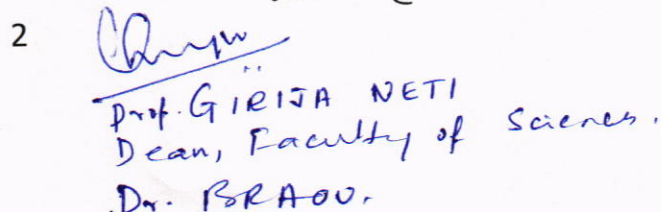 2
Prof. GIRIJA NETI
Dean, Faculty of Sciences.
Dr. BRAOU.